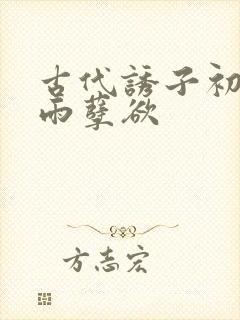 古代誘子初
雨孽欲
方志宏